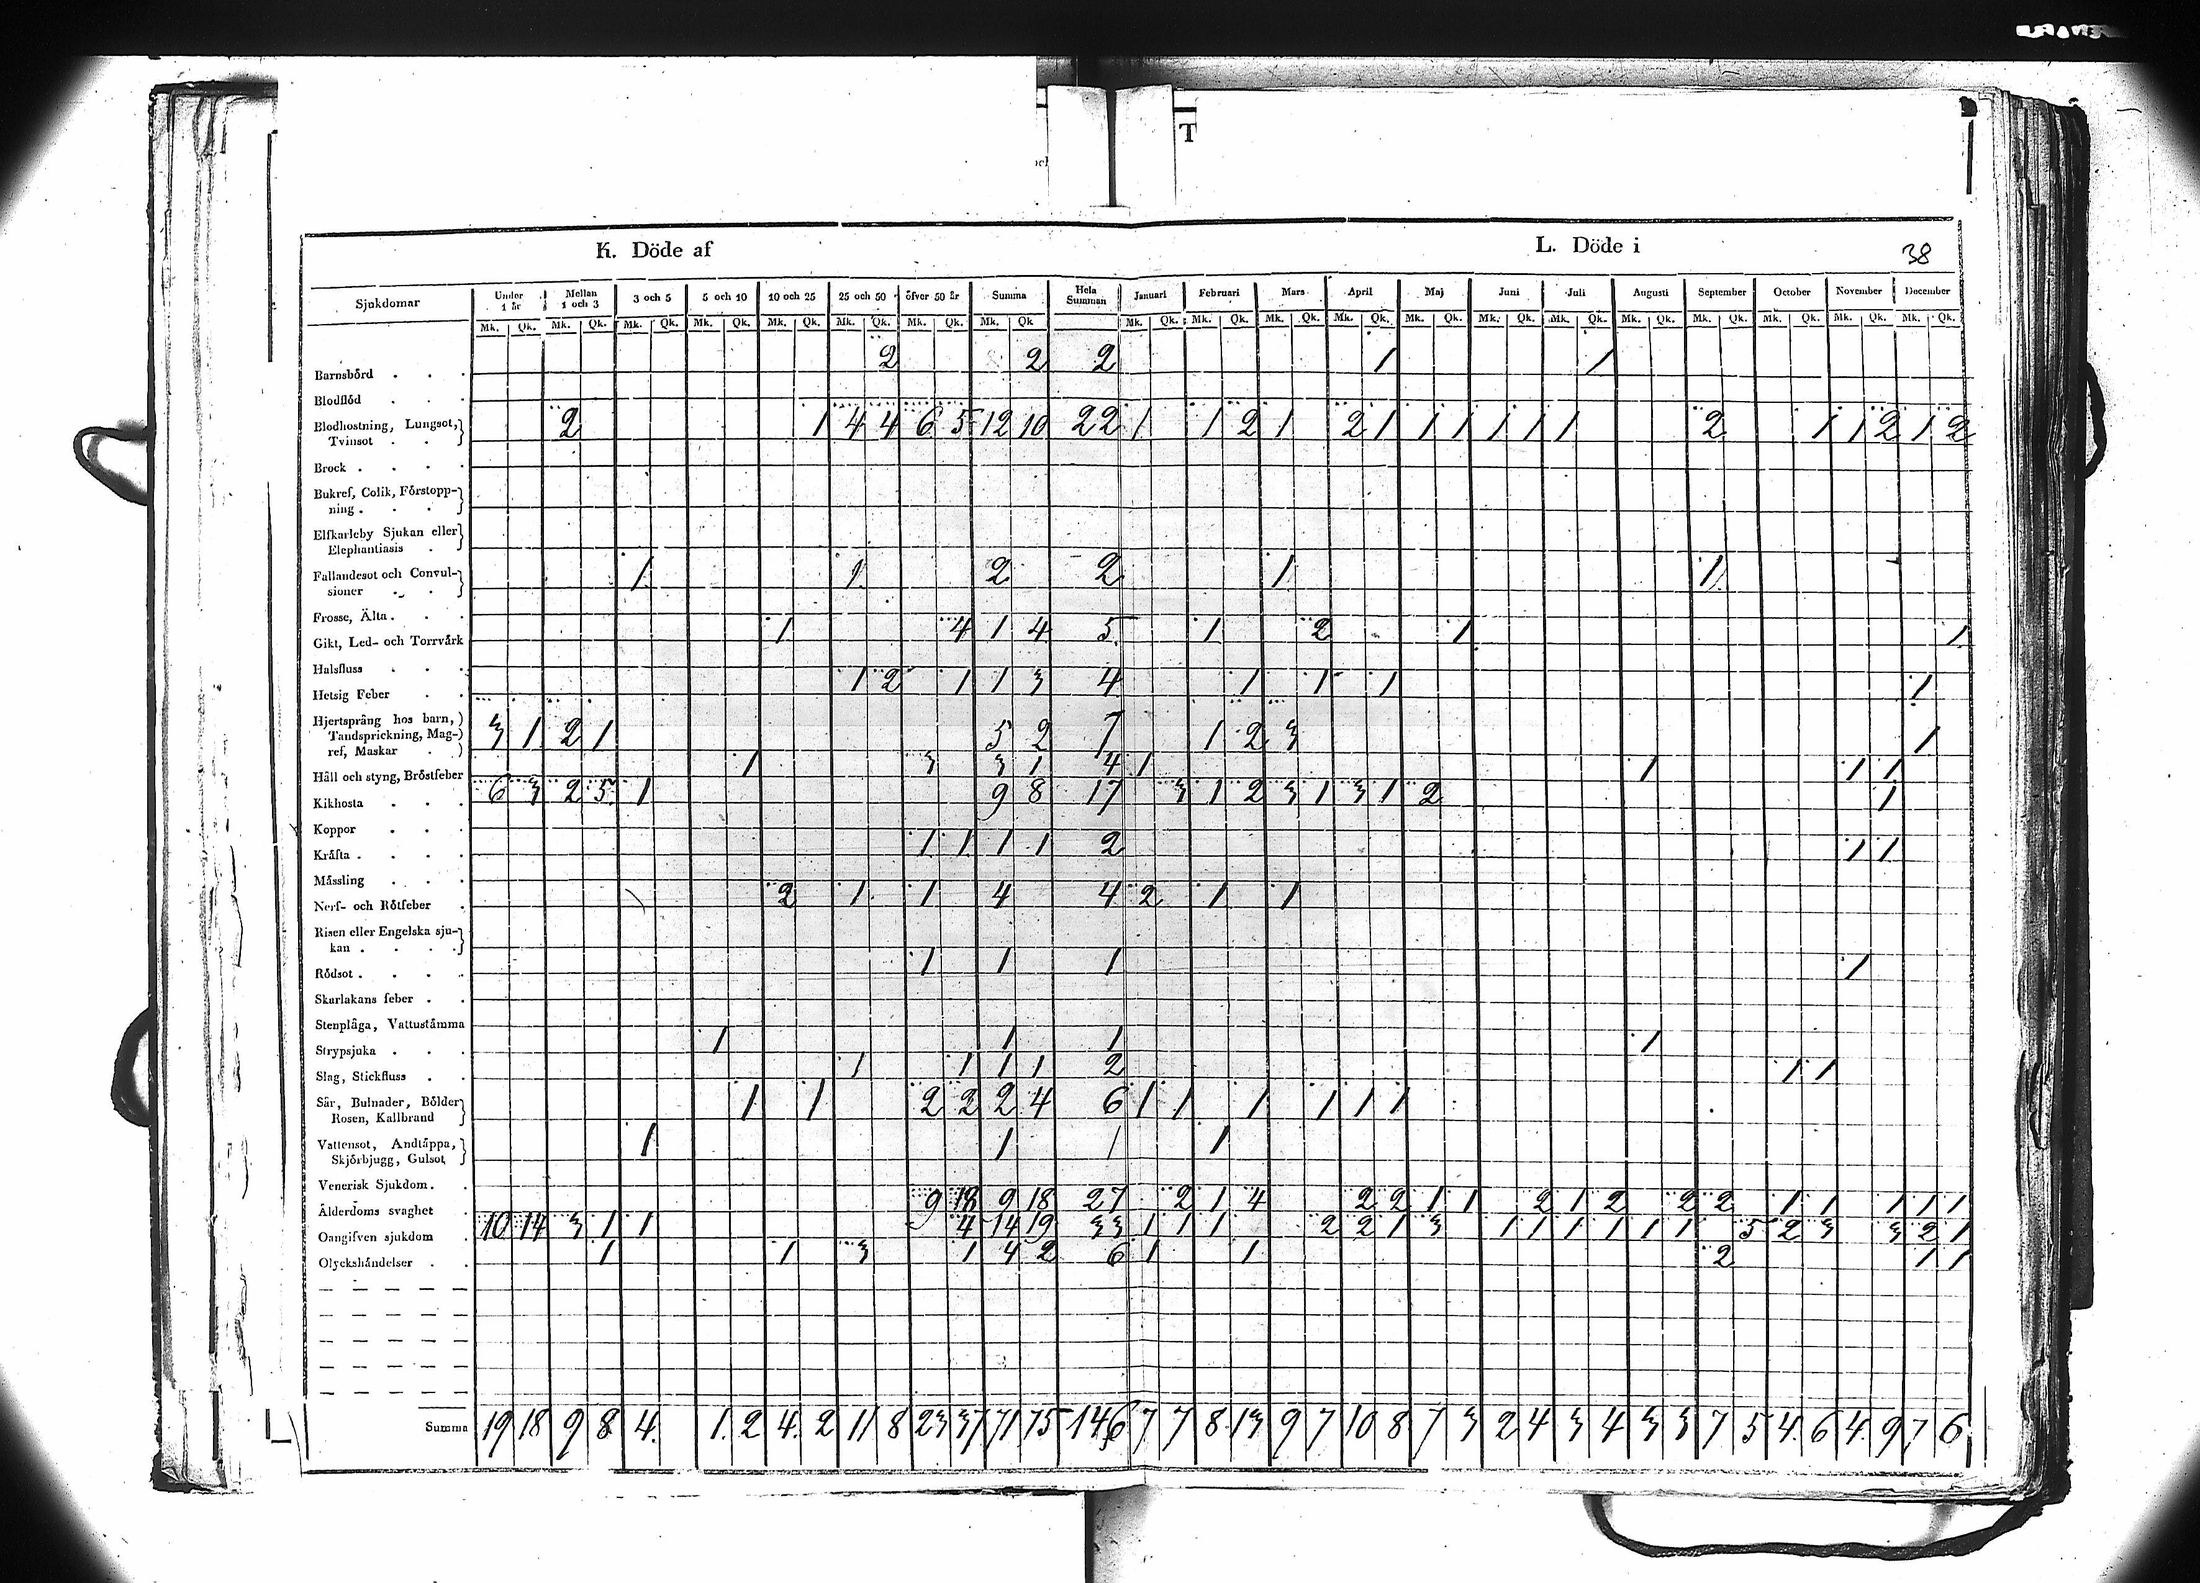 T
K. Döde af L. Döde i 38
Sjukdomar Under 1 år Mellan 1 och 3 3 och 5 5 och 10 10 och 25 25 och 50 öfver 50 år Summa Hela Summan Januari Februari Mars April Maj Juni Juli Augusti September October November December
Mk. Qk. Mk. Qk. Mk. Qk. Mk. Qk. Mk. Qk. Mk. Qk. Mk. Qk. Mk. Qk Mk. Qk. Mk. Qk. Mk. Qk. Mk. Qk. Mk. Qk. Mk. Qk. Mk. Qk. Mk. Qk. Mk. Qk. Mk. Qk. Mk. Qk. Mk. Qk.
Barnsbörd . . . 2 2 2 1 1
Blodflöd . . .
Blodhostning, Lungsot,
Tvinsot . . 2 1 4 4 6 5 12 10 22 1 1 2 1 2 1 1 1 1 1 1 2 1 1 2 1 2
Brock . . . .
Bukref, Colik, Förstopp-
ning . . .
Elfkarleby Sjukan eller
Elephantiasis .
Fallandesot och Convul-
sioner . . 1 1 2 2 1 1
Frosse, Älta . . .
Gikt, Led- och Torrvärk 1 4 1 4 5 1 2 1 1
Halsfluss . . .
Hetsig Feber . . 1 2 1 1 3 4 1 1 1 1
Hjertsprång hos barn,
Tandsprickning, Mag-
ref, Maskar . 3 1 2 1 5 2 7 1 2 3 1
Håll och styng, Bröstfeber 1 3 3 1 4 1 1 1 1
Kikhosta . . . 6 3 2 5 1 9 8 17 3 1 2 3 1 3 1 2 1
Koppor . . .
Kräfta . . . . 1 1 1 1 2 1 1
Mässling . . .
Nerf- och Rötfeber . 2 1 1 4 4 2 1 1
Risen eller Engelska sju-
kan . . . .
Rödsot . . . . 1 1 1 1
Skarlakans feber . .
Stenplåga, Vattustämma
Strypsjuka . . . 1 1 1 1
Slag, Stickfluss . . 1 1 1 1 2 1 1
Sår, Bulnader, Bölder
Rosen, Kallbrand 1 1 2 2 2 4 6 1 1 1 1 1 1
Vattensot, Andtäppa,
Skjörbjugg, Gulsot 1 1 1 1
Venerisk Sjukdom . .
Ålderdoms svaghet . 9 18 9 18 27 2 1 4 2 2 1 1 2 1 2 2 2 1 1 1 1 1
Oangifven sjukdom . 10 14 3 1 1 4 14 19 33 1 1 1 2 2 1 3 1 1 1 1 1 1 5 2 3 3 2 1
Olyckshändelser . . 1 1 3 1 4 2 6 1 1 2 1 1
Summa 19 18 9 8 4. 1. 2 4. 2 11 8 23 37 71 75 146 7 7 8 13 9 7 10 8 7 3 2 4 3 4 3 3 7 5 4. 6 4. 9 7 6